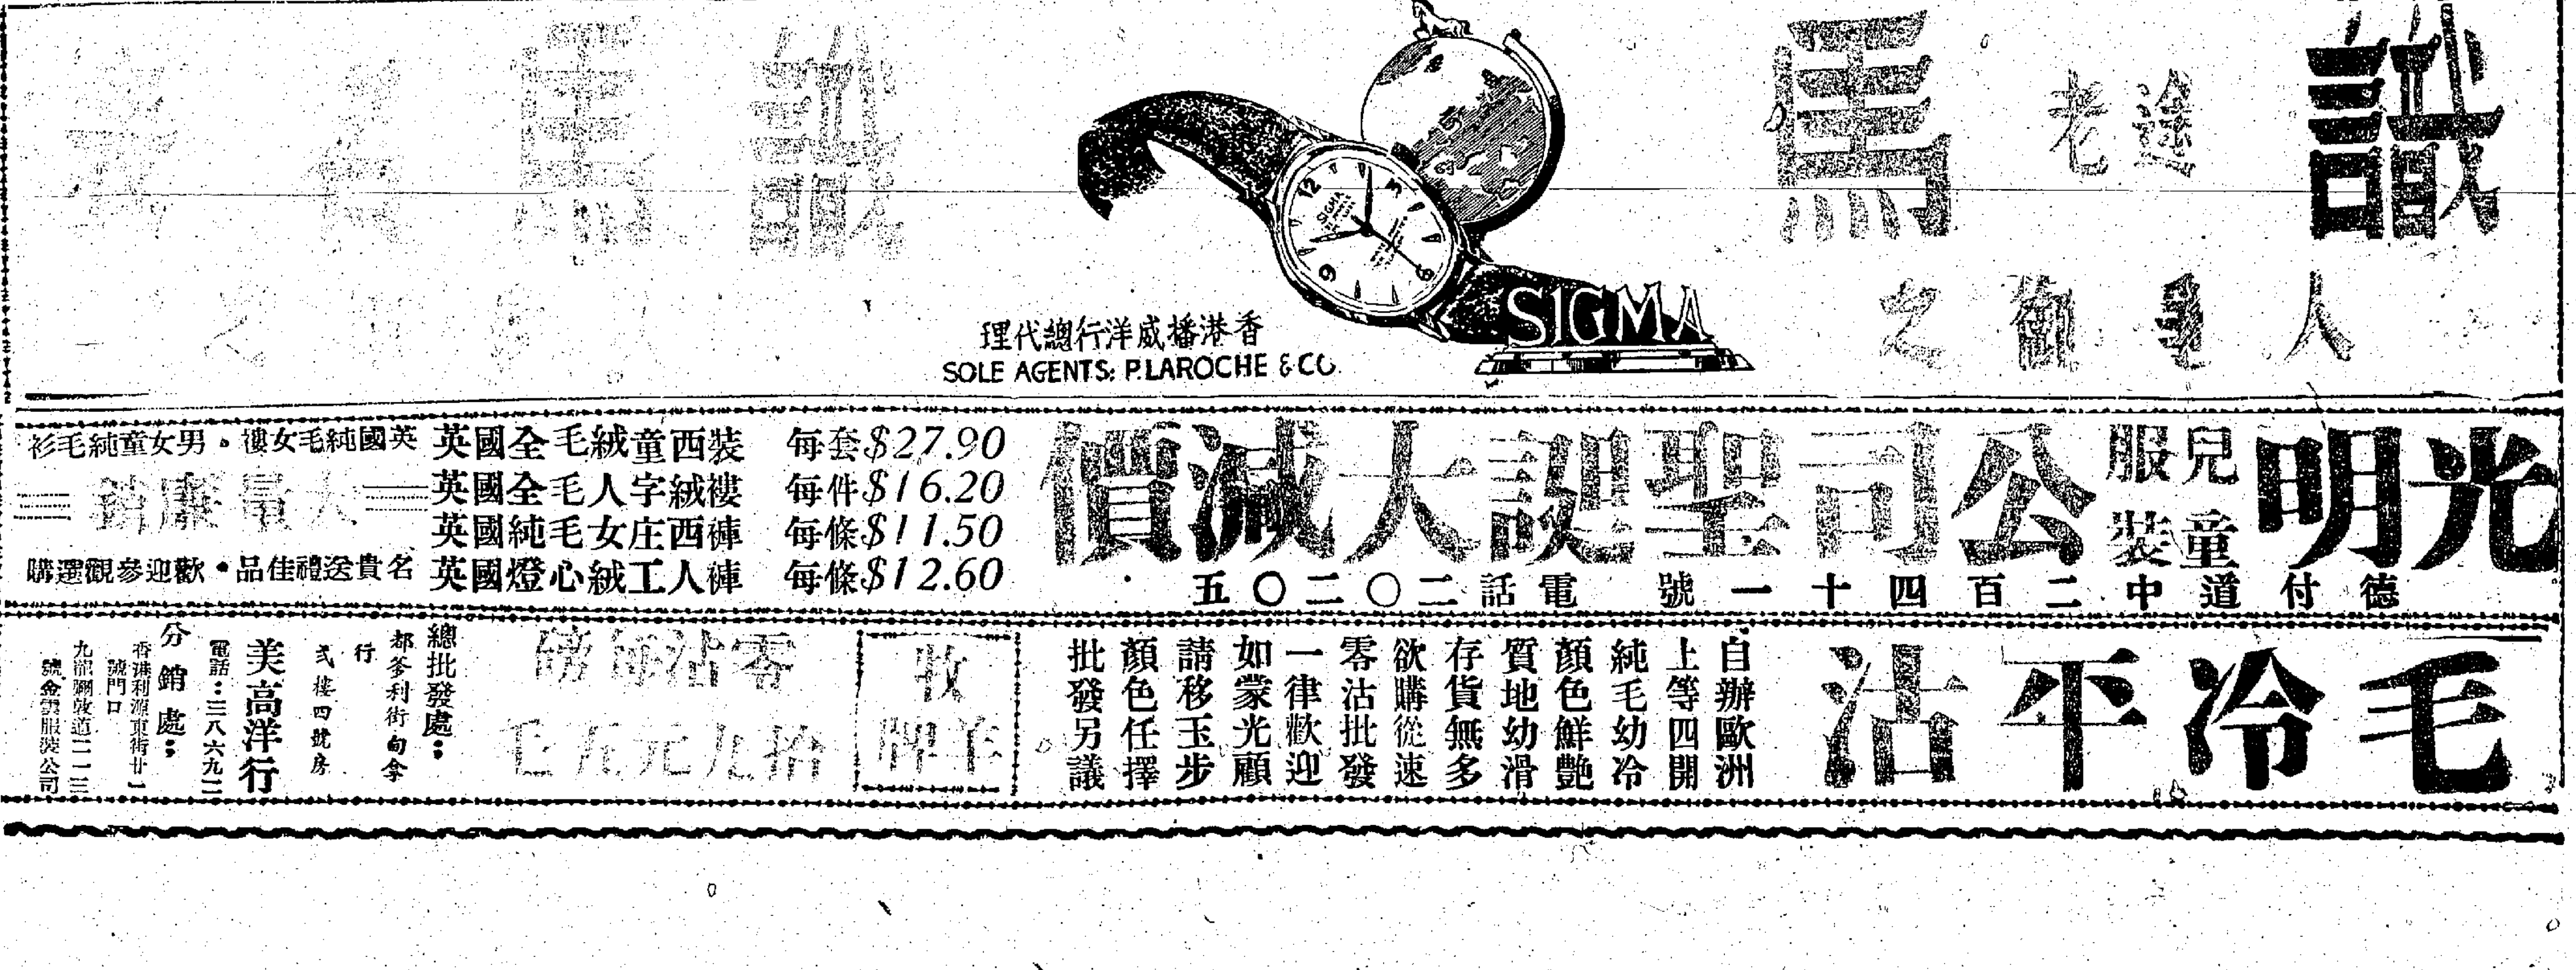 識
途
老
馬
人
之
SIGMA
香港播威洋行總代理
SOLE AGENTS: P.LAROCHE & CO.
光明
兒童
服裝
公司聖誕大減價
德付道中二百四十一號 電話二〇二〇五
英國全毛絨童西裝 每套$27.90
英國全毛人字絨褸 每件$16.20
英國純毛女庄西褲 每條$11.50
英國燈心絨工人褲 每條$12.60
英國純毛女褸。男女童純毛衫
大量廉銷
名貴送禮佳品•歡迎參觀選購
毛冷平沽
自辦歐洲
上等四開
純毛幼冷
顏色鮮艷
質地幼滑
存貨無多
欲購從速
零沽批發
一律歡迎
如蒙光顧
請移玉步
顏色任擇
批發另議
牧羊牌
零沽每磅
拾九元九毛
總批發處：
都爹利街甸拿
行
弍樓四號房
美高洋行
電話：三八六九二
分銷處：
香港利源東街廿一
號門口
九龍彌敦道
號金雲服裝公司